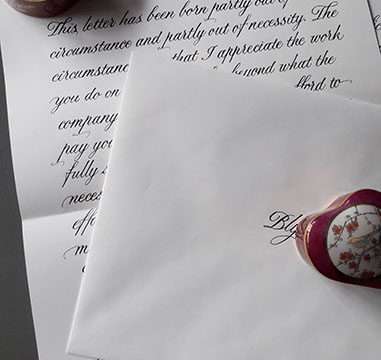 This letter has been born partly out of
circumstance and partly out of necessity. The
circumstance that I appreciate the work
you do on beyond what the
company fford to
pay you
fully s
neces
effo
m
Bly